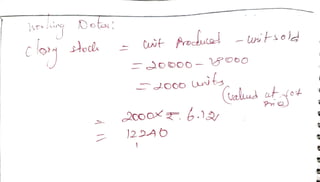 Working Notes:
Closg stock = unit Produced - unit sold
= 20000 - 18000
= 2000 units
(valued at
= 2000 × ₹. 6.12
= 12240